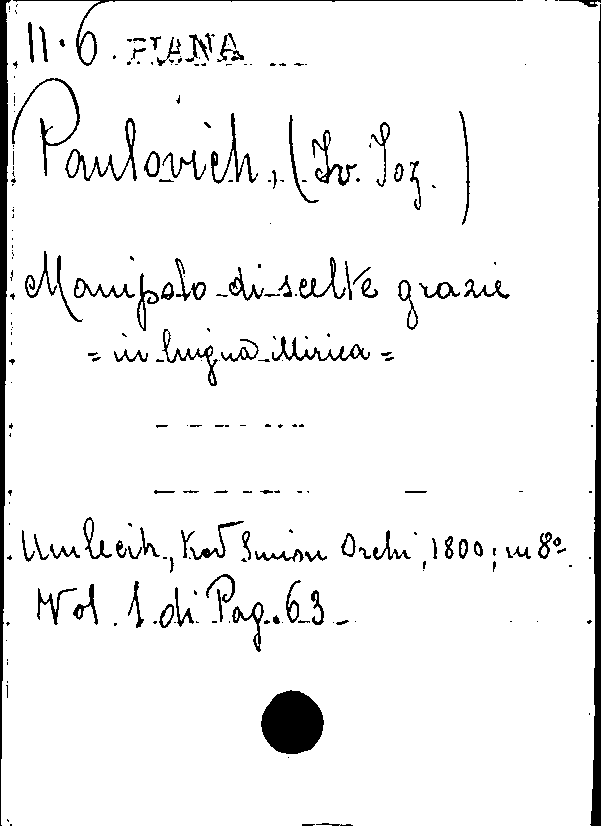 II.6. PIANA
Paulovich, (Iv. Joz.)
Manipolo di scelte grazie
= in lingua illirica =
Umlecih, Kod Simon Orchi, 1800; in 8º
Vol. 1 di Pag. 63